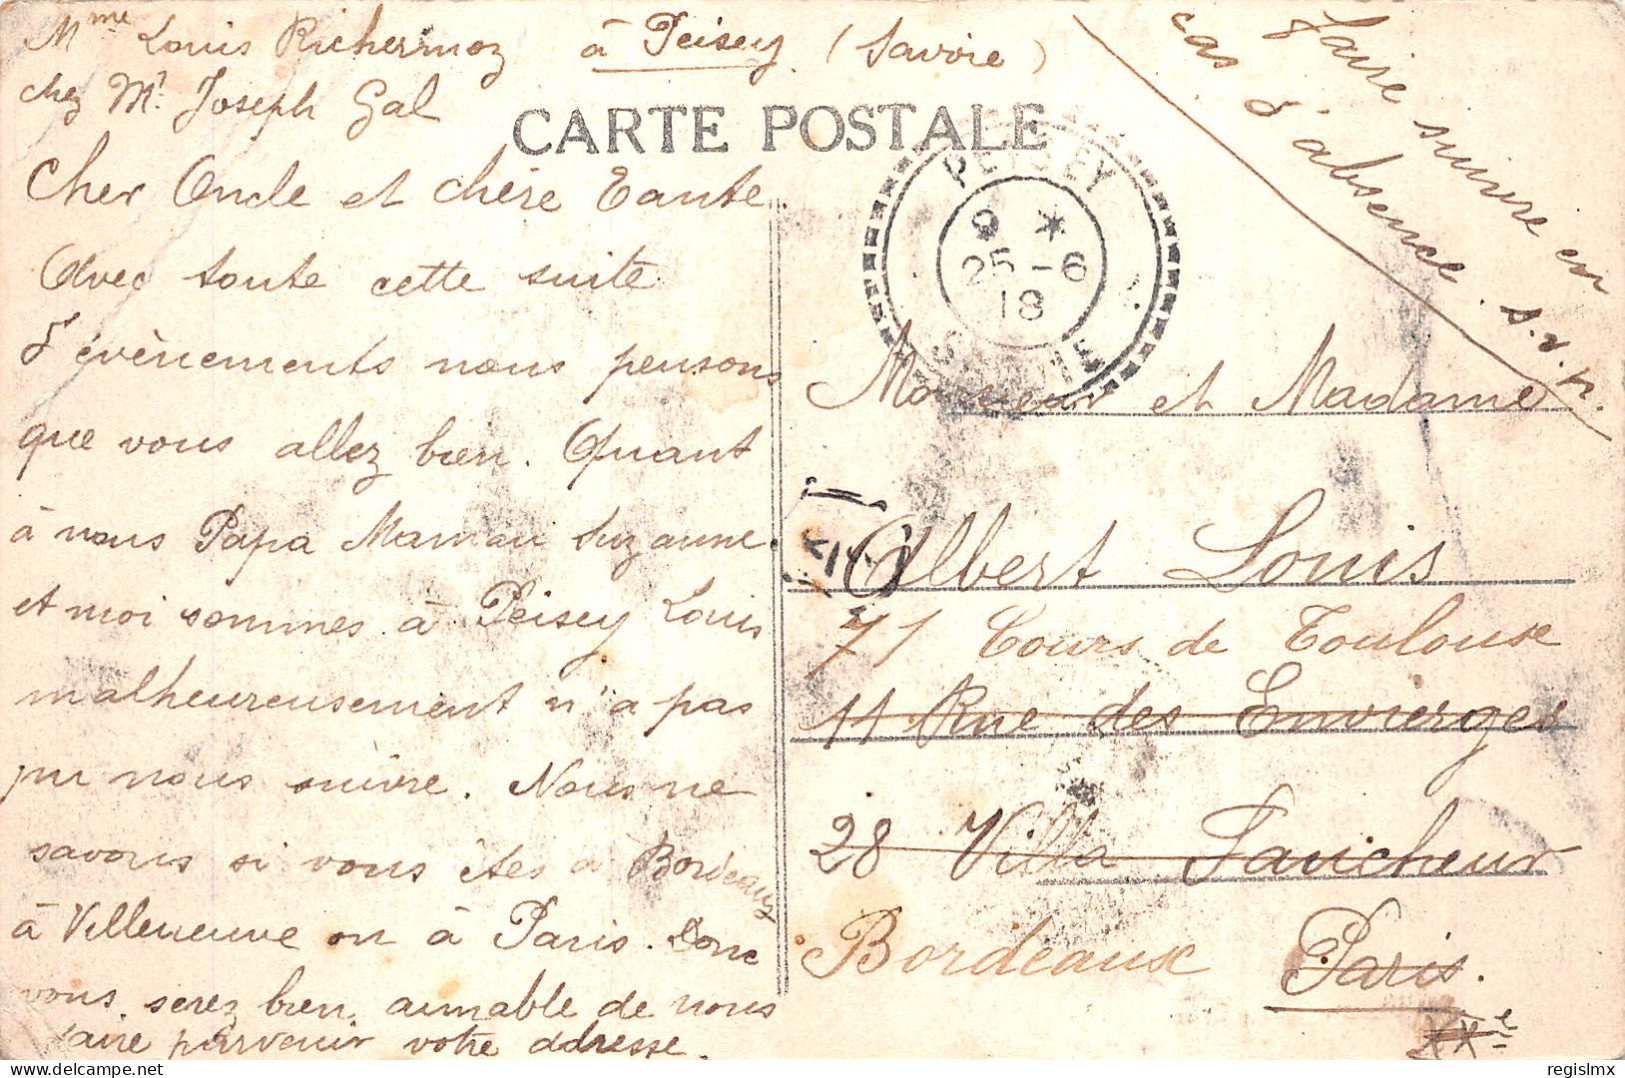 Mme Louis Richermoz à Peisey (Savoie)
chez Mr. Joseph Gal
CARTE POSTALE
Cher Oncle et chère Tante.
Avec toute cette suite
d'évènements nous pensons
que vous allez bien. Quant
à nous Papa Maman Suzanne
et moi sommes à Peisey Louis
malheureusement n'a pas
pu nous suivre. Nous ne
savons si vous êtes à Bordeaux
à Villeneuve ou à Paris. Donc
vous serez bien aimable de nous
faire parvenir votre adresse.
Faire suivre en
cas d'absence. s.v.p.
PEISEY
9 *
25 - 6
18
SAVOIE
Monsieur et Madame
Albert Louis
71 Cours de Toulouse
11 Rue des Envierges
28 Villa Faucheur
Bordeaux Paris.
XXe
regislmx